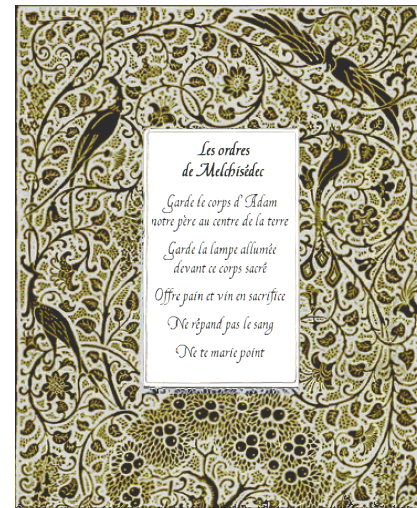 Les ordres
de Melchisédec
Garde le corps d'Adam
notre père au centre de la terre
Garde la lampe allumée
devant ce corps sacré
Offre pain et vin en sacrifice
Ne répand pas le sang
Ne te marie point